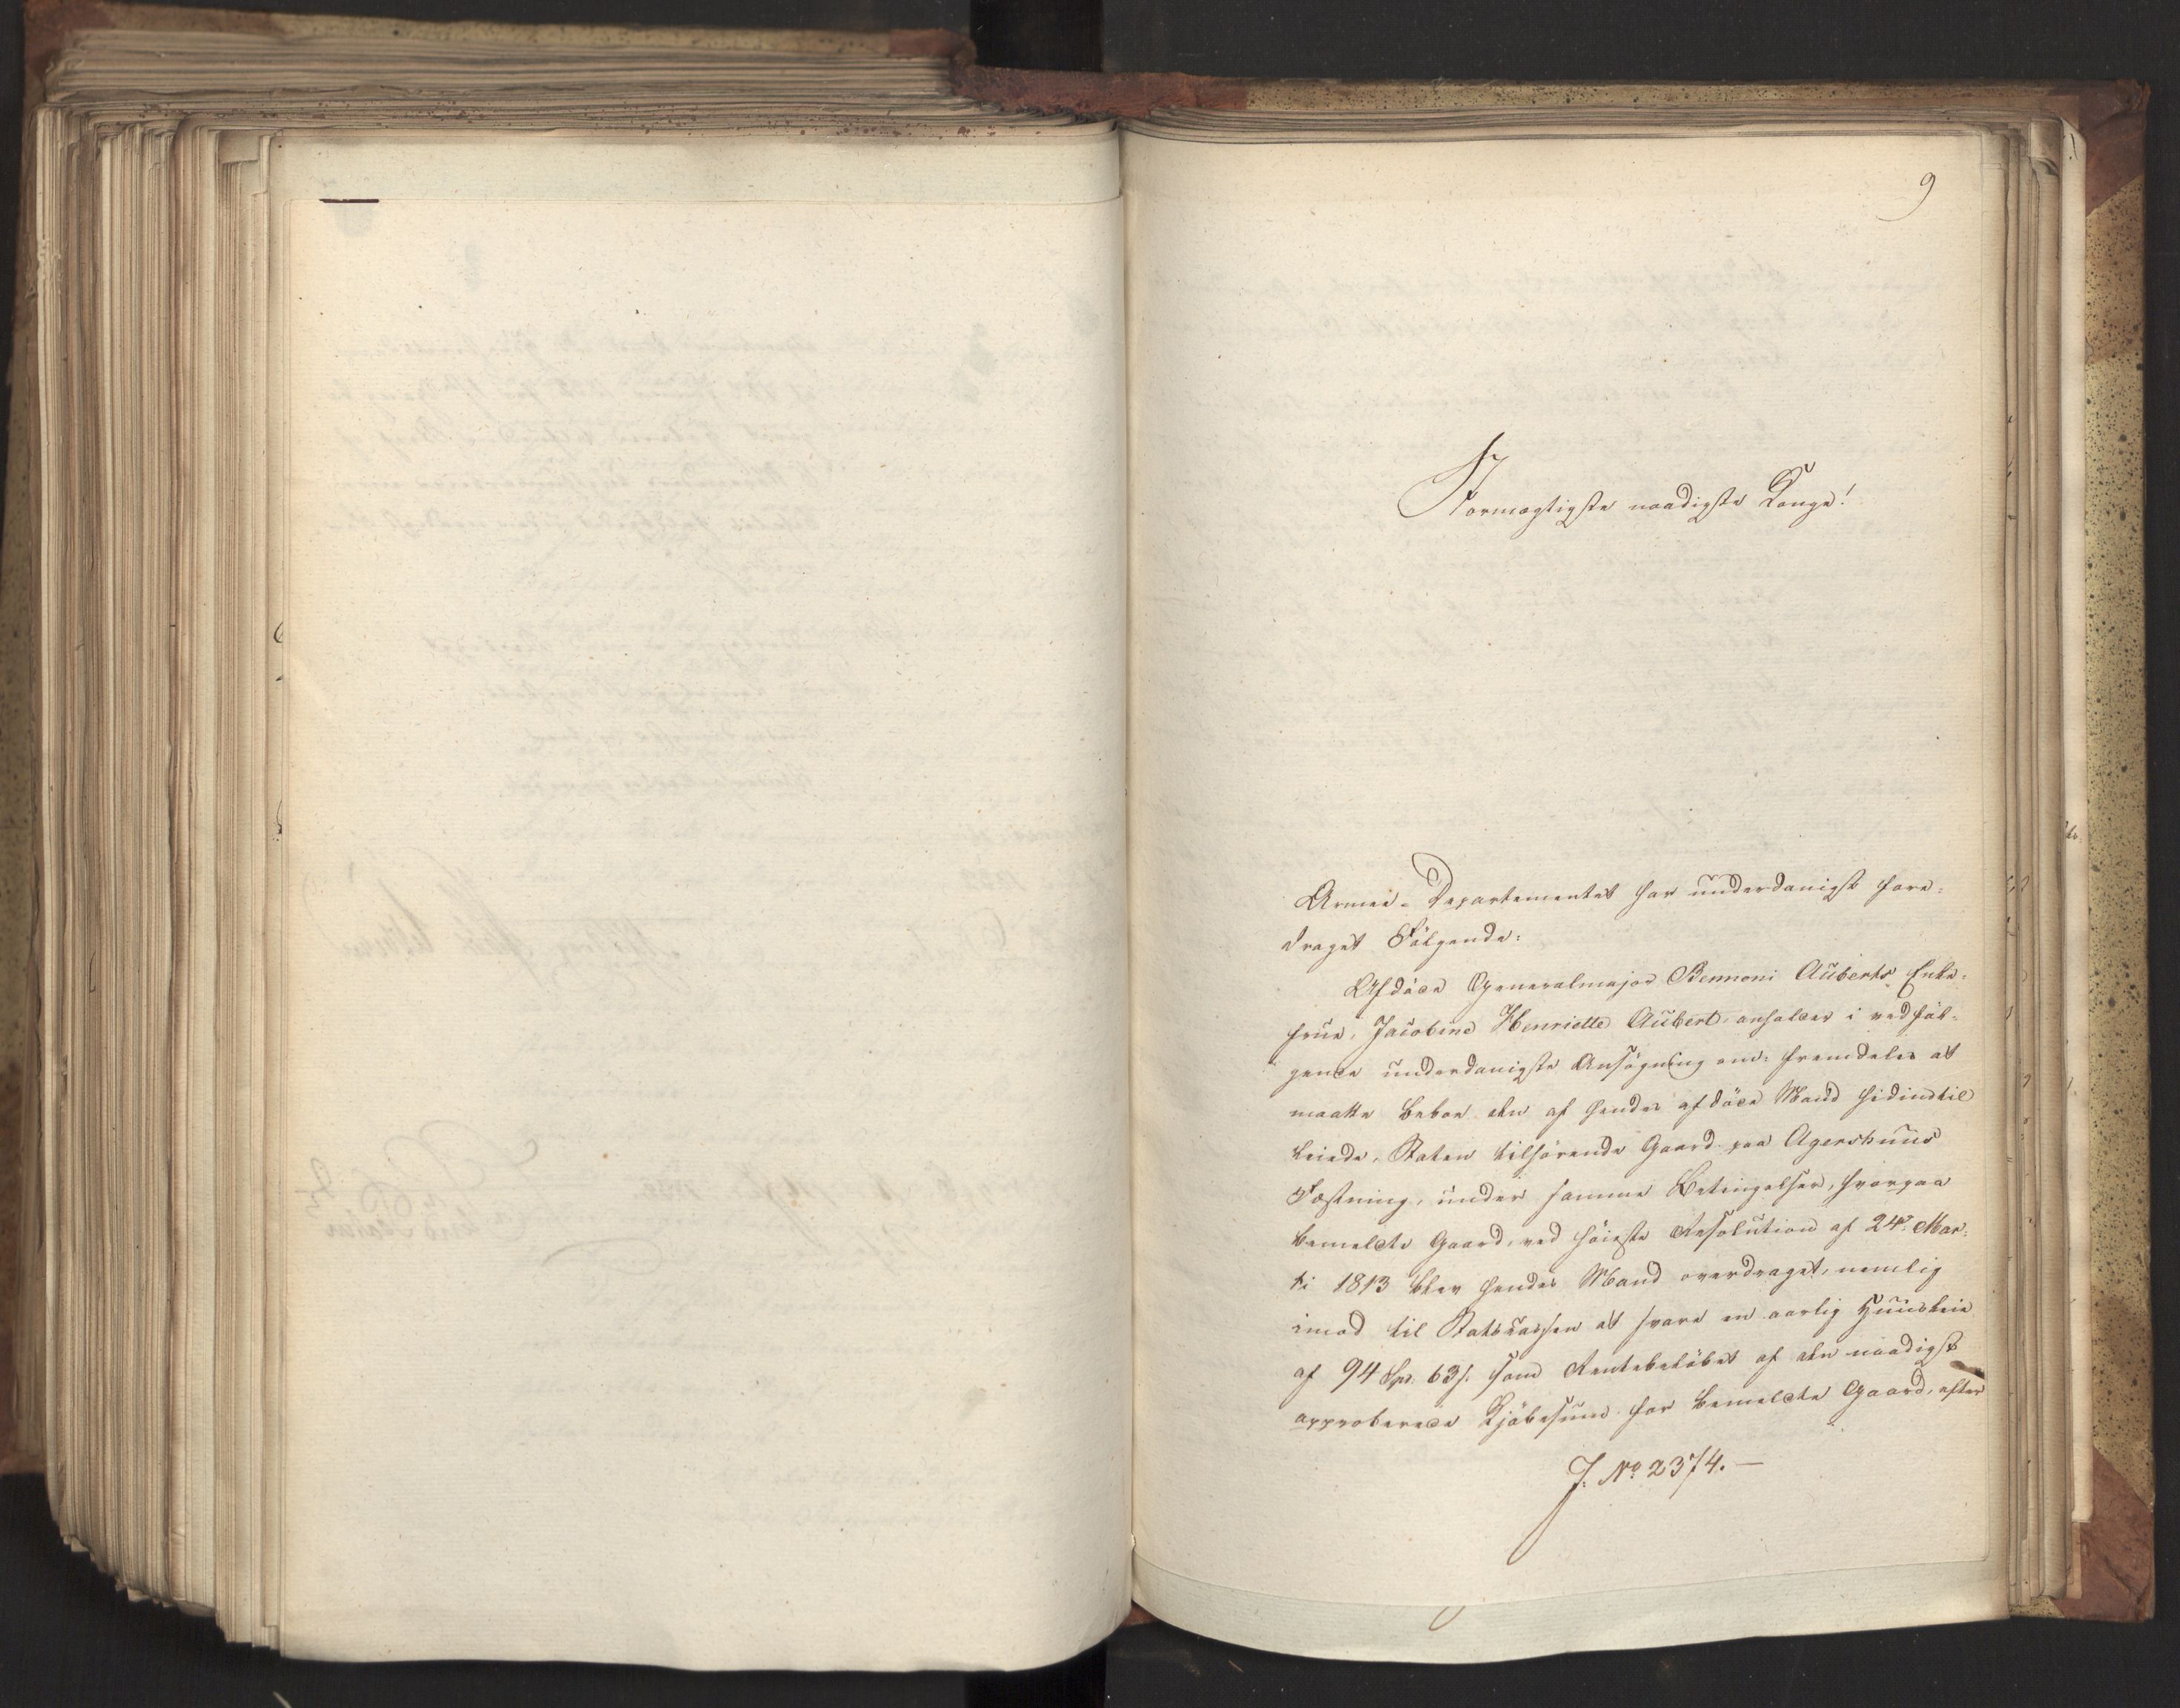 9
Stormægtigste naadigste Konge!
Armee-Departementet har underdanigst fore-
draget Følgende:
Afdøde Generalmajor Bennoni Auberts Enke-
frue, Jacobine Henriette Aubert, anholder i vedføl-
gende underdanigste Ansøgning om: fremdeles at
maatte beboe den af hendes afdøde Mand hidindtil
leiede, Staten tilhørende Gaard paa Agershuus
Fæstning, under samme Betingelser, hvorpaa
bemeldte Gaard, ved høieste Resolution af 24de Mar-
ti 1813 blev hendes Mand overdraget, nemlig
imod til Statskassen at svare en aarlig Huusleie
af 94 Spd. 63 s. som Rentebeløbet af den naadigst
approberede Kjøbesum for bemeldte Gaard, efter
J. No 2374. —